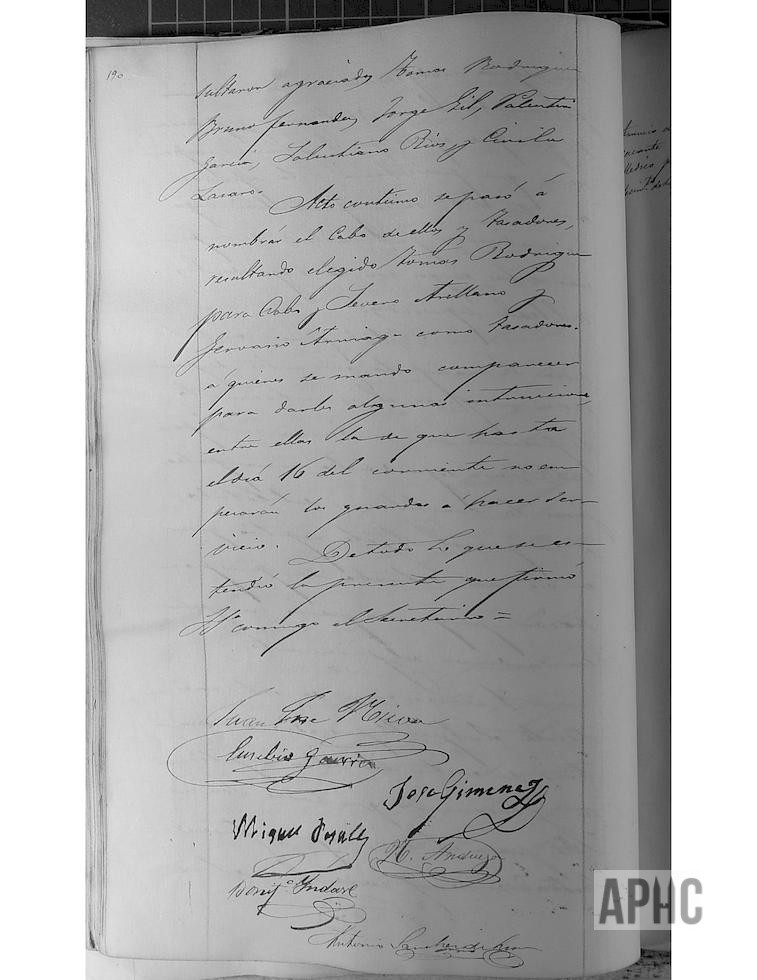 190
sultaron agraciados Tomas Rodriguez
Bruno Fernandez, Jorge Gil, Valentin
Garcia, Salustiano Rios, y Cirilo
Lazaro.
Acto continuo se pasó á
nombrár el Cabo de ellos y tasadores,
resultando elegido Tomas Rodriguez
para Cabo y Severo Arellano y
Gervasio como tasadores.
á quienes se mando comparecer
para darles algunas intruciones,
entre ellas la de que hasta
el diá 16 del corriente no em
pezarán los guardas á hacer ser-
vicio. De todo lo que se es-
tendió la presente que firmó
S Sª conmigo el Secretario =
Juan José
Eusebio Garcia
Jose Gimenez
Miguel
Antonio Sanchez
APHC